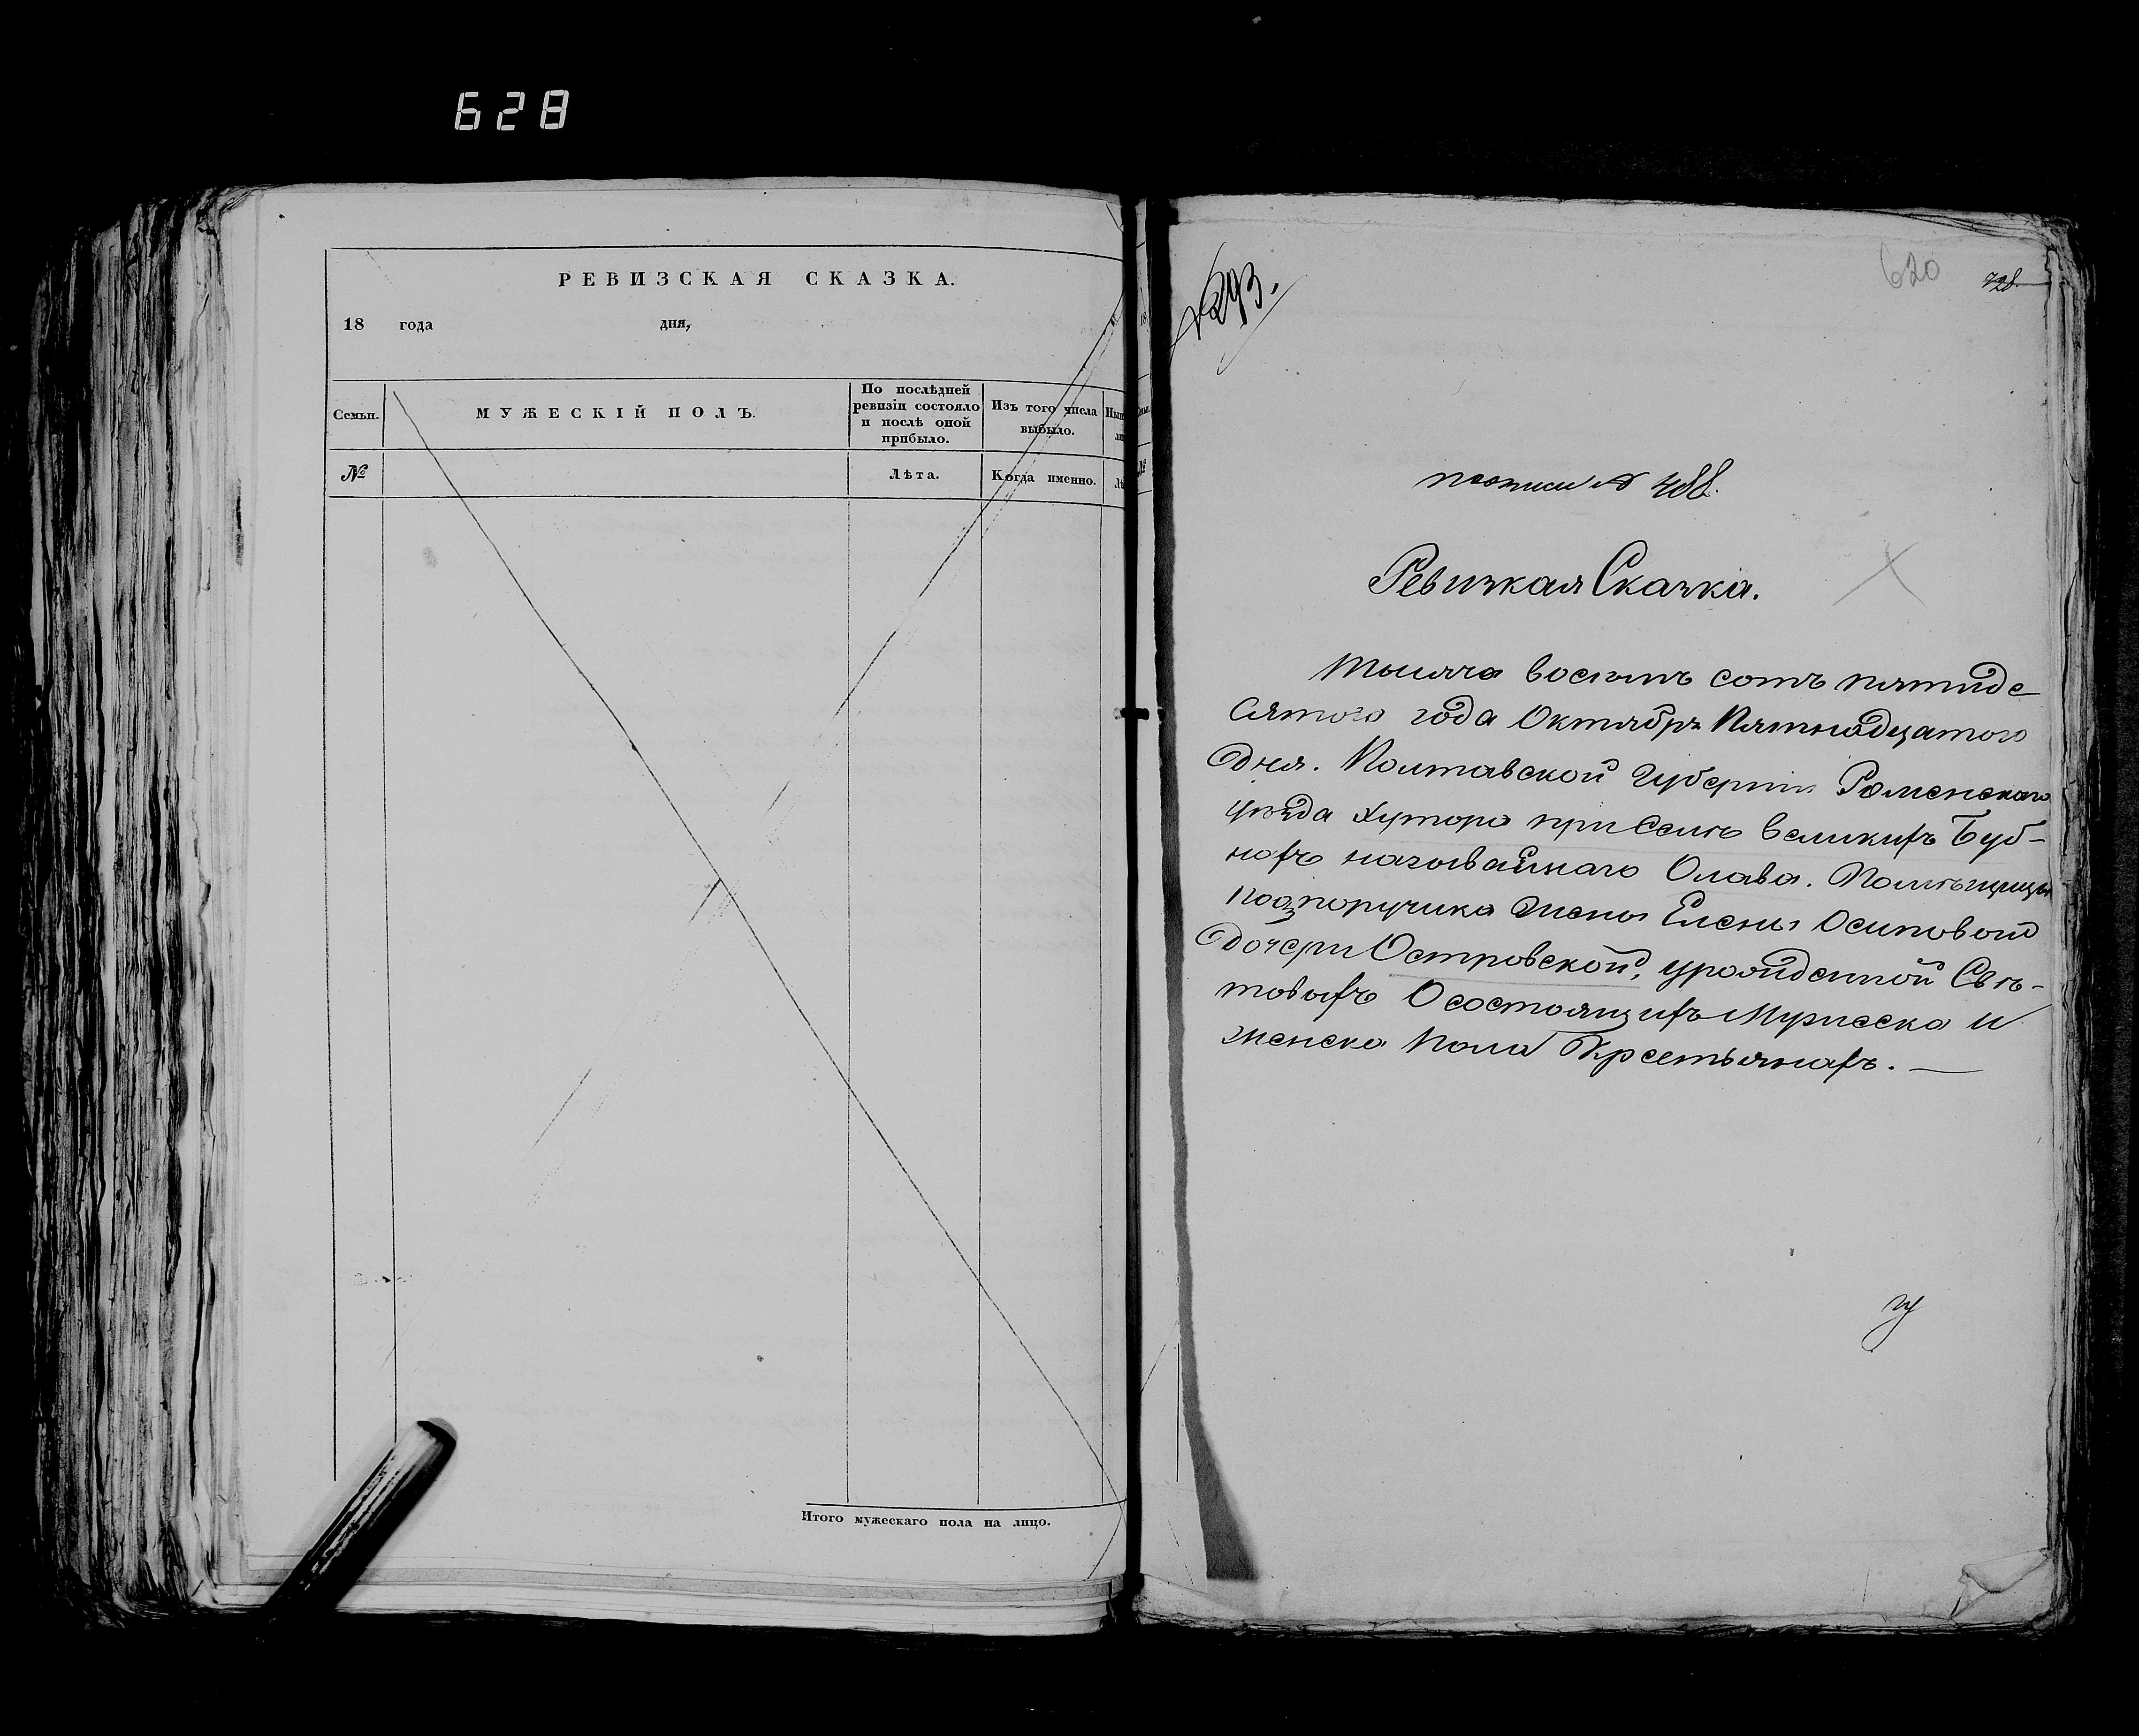 628
РЕВИЗСКАЯ СКАЗКА.
18 года дня,
Семьи.
МУЖЕСКІЙ ПОЛЪ.
По послѣдней
ревизіи состояло
и послѣ оной
прибыло.
Изъ того числа
выбыло.
№
Лѣта.
Когда именно.
Итого мужескаго пола на лицо.
293.
620
728
пописи № 488.
Ревизкая Сказка.
Тысяча восемъ сотъ пятиде
сятого года Октябръ Пятнадцатого
дня. Полтавской Губерніи Роменскаго
уѣзда Хутора при Селѣ Великихъ Буб-
нахъ называемаго Олава. Помѣщицы
Подпоручика жены Елены Осиповой
дочери Островской, урожденной Свѣ-
товыхъ О состоящихъ Мужеска и
женска Пола Крестьянахъ. —